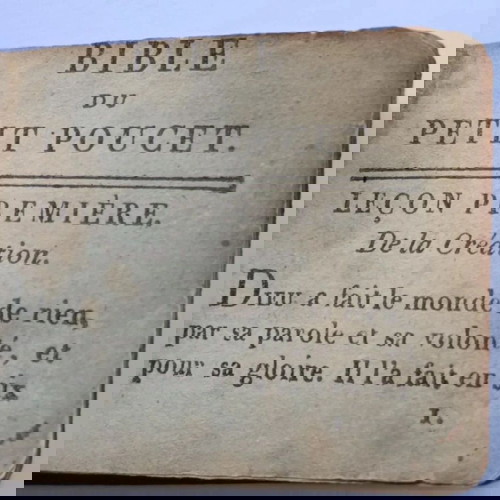 BIBLE
DU
PETIT POUCET.
LEÇON PREMIÈRE.
De la Création.
DIEU a fait le monde
de rien,
par sa parole et sa volon
té, et
pour sa gloire. Il l'a fait en
six
1.